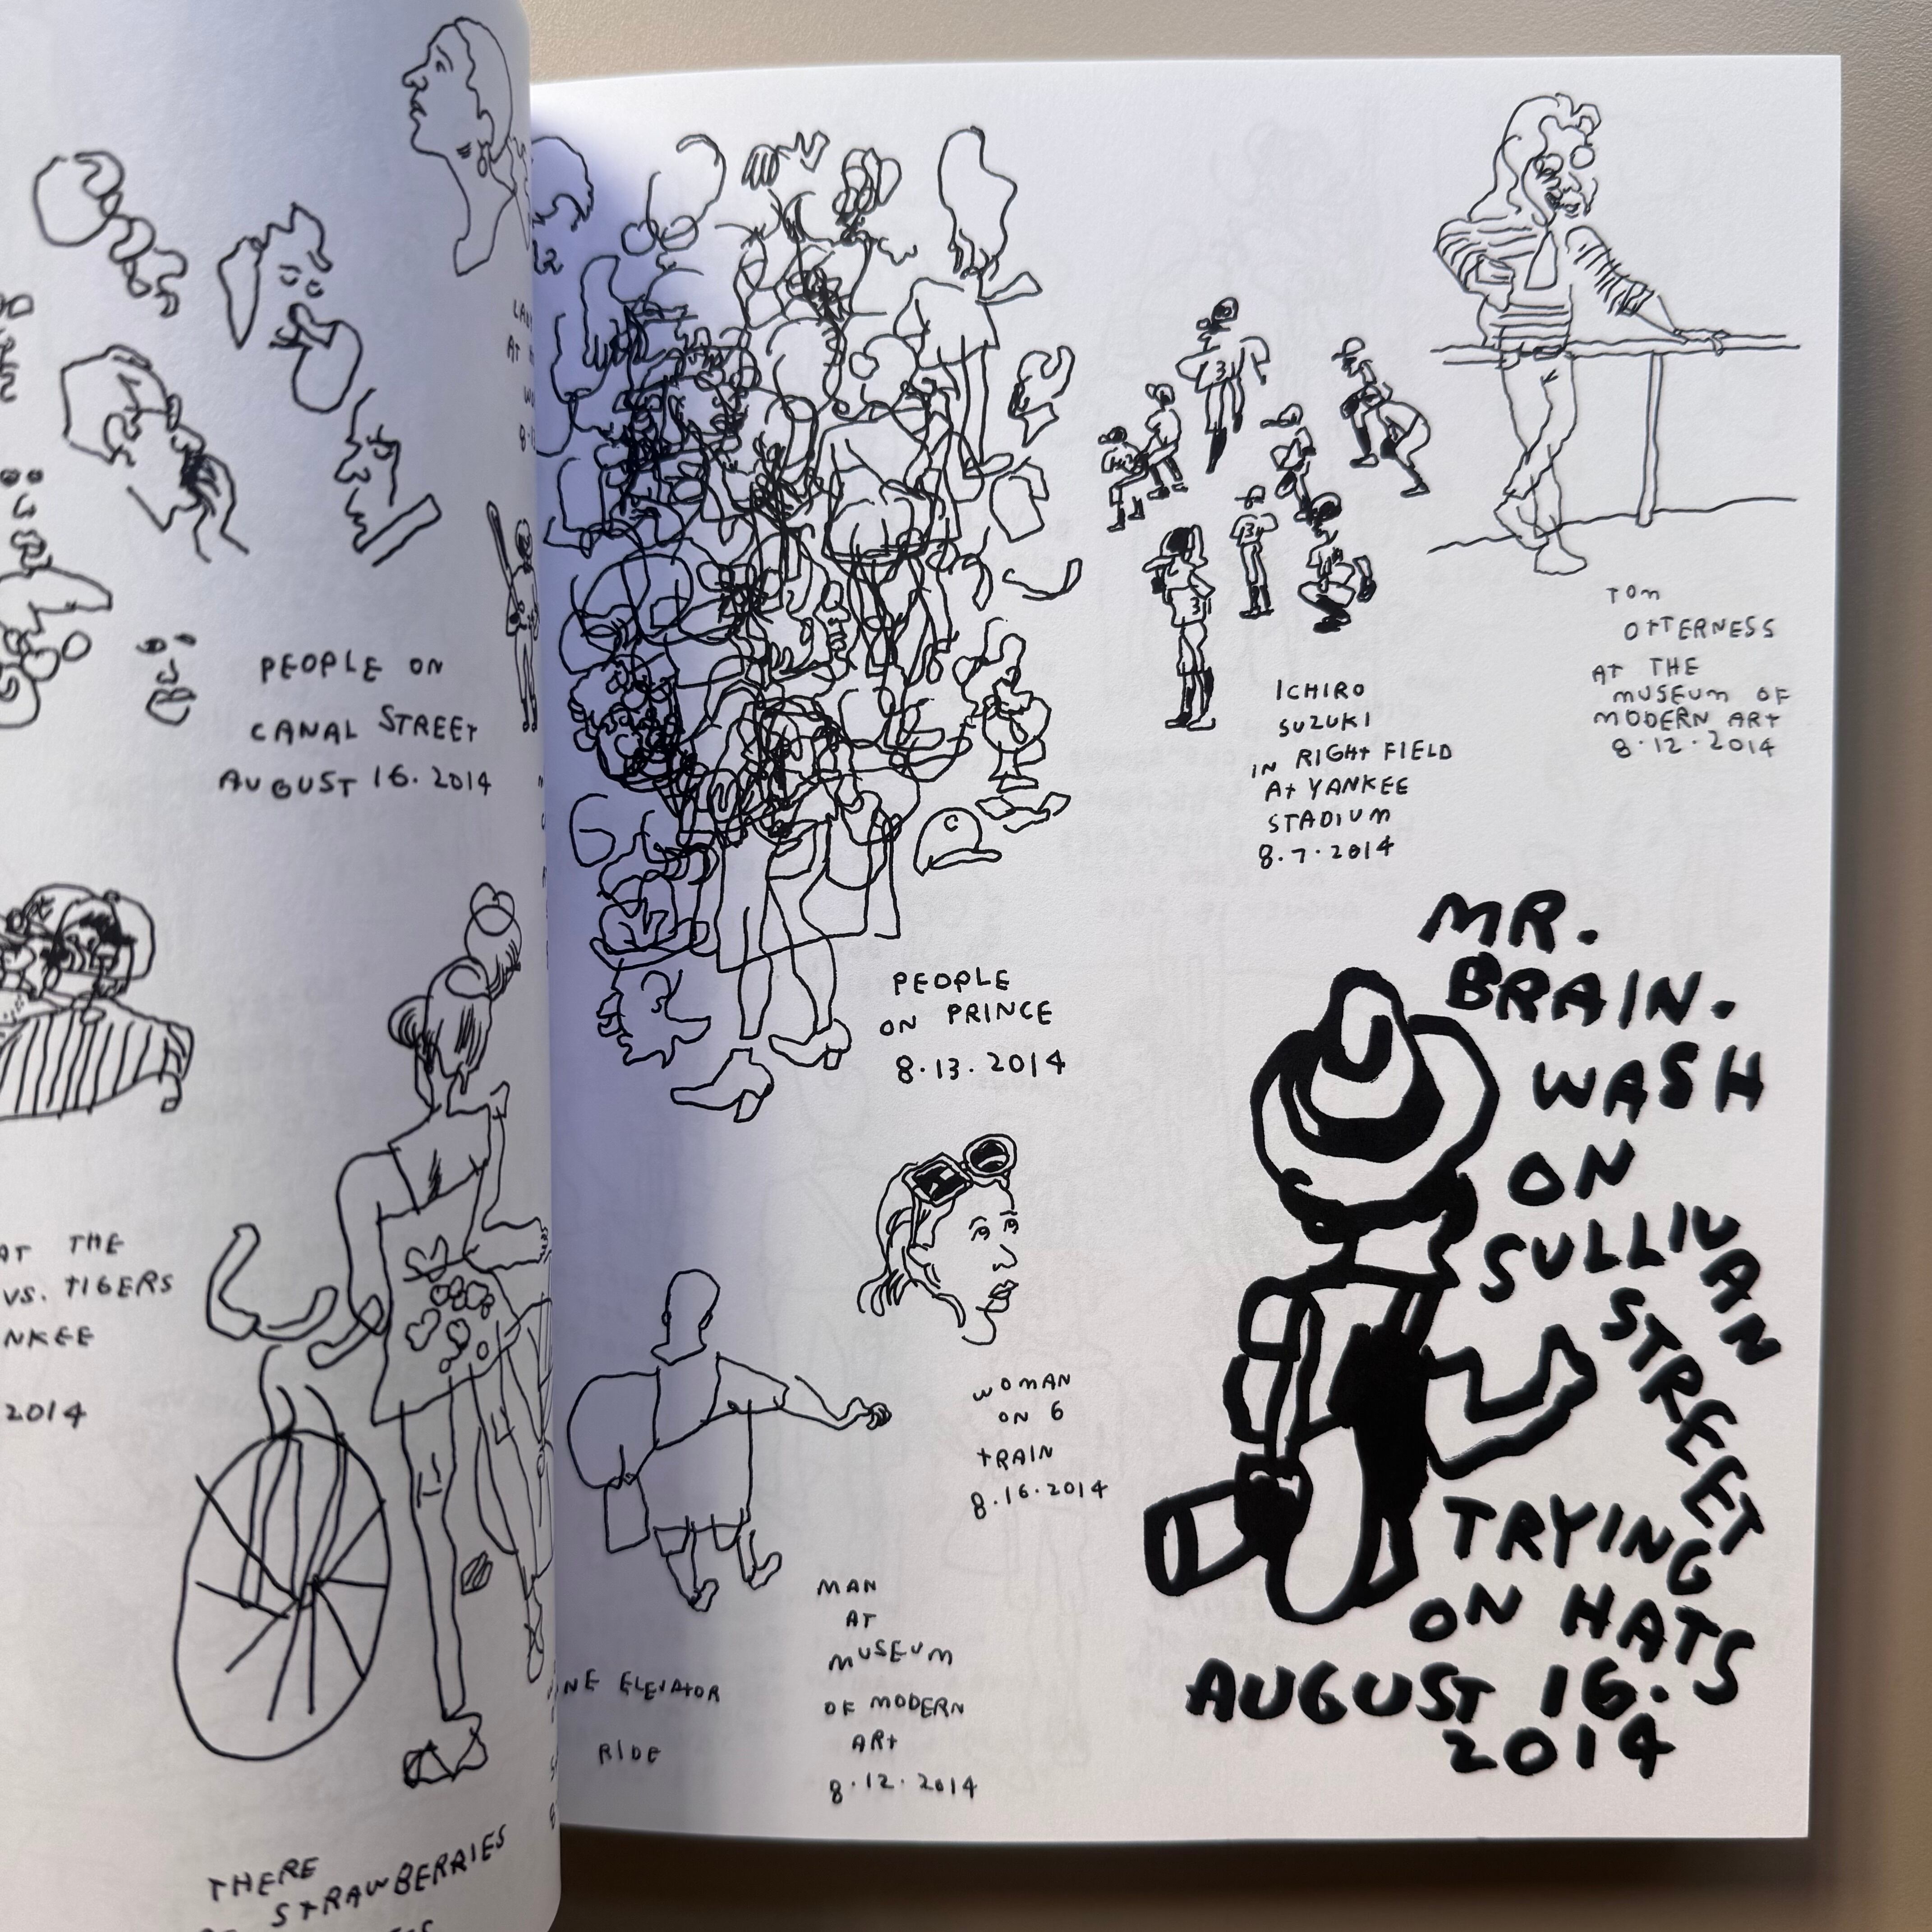 PEOPLE ON
CANAL STREET
AUGUST 16. 2014
AT THE
VS. TIGERS
2014
THERE
STRAWBERRIES
AT
PEOPLE
ON PRINCE
8.13.2014
C
31
ICHIRO
SUZUKI
IN RIGHT FIELD
AT YANKEE
STADIUM
8.7.2014
TOM
OTTERNESS
AT THE
MUSEUM OF
MODERN ART
8.12.2014
WOMAN
ON 6
TRAIN
8.16.2014
MAN
AT
MUSEUM
OF MODERN
ART
8.12.2014
ELEVATOR
RIDE
MR.
BRAIN.
WASH
ON
SULLIVAN
STREET
TRYING
ON HATS
AUGUST 16.
2014